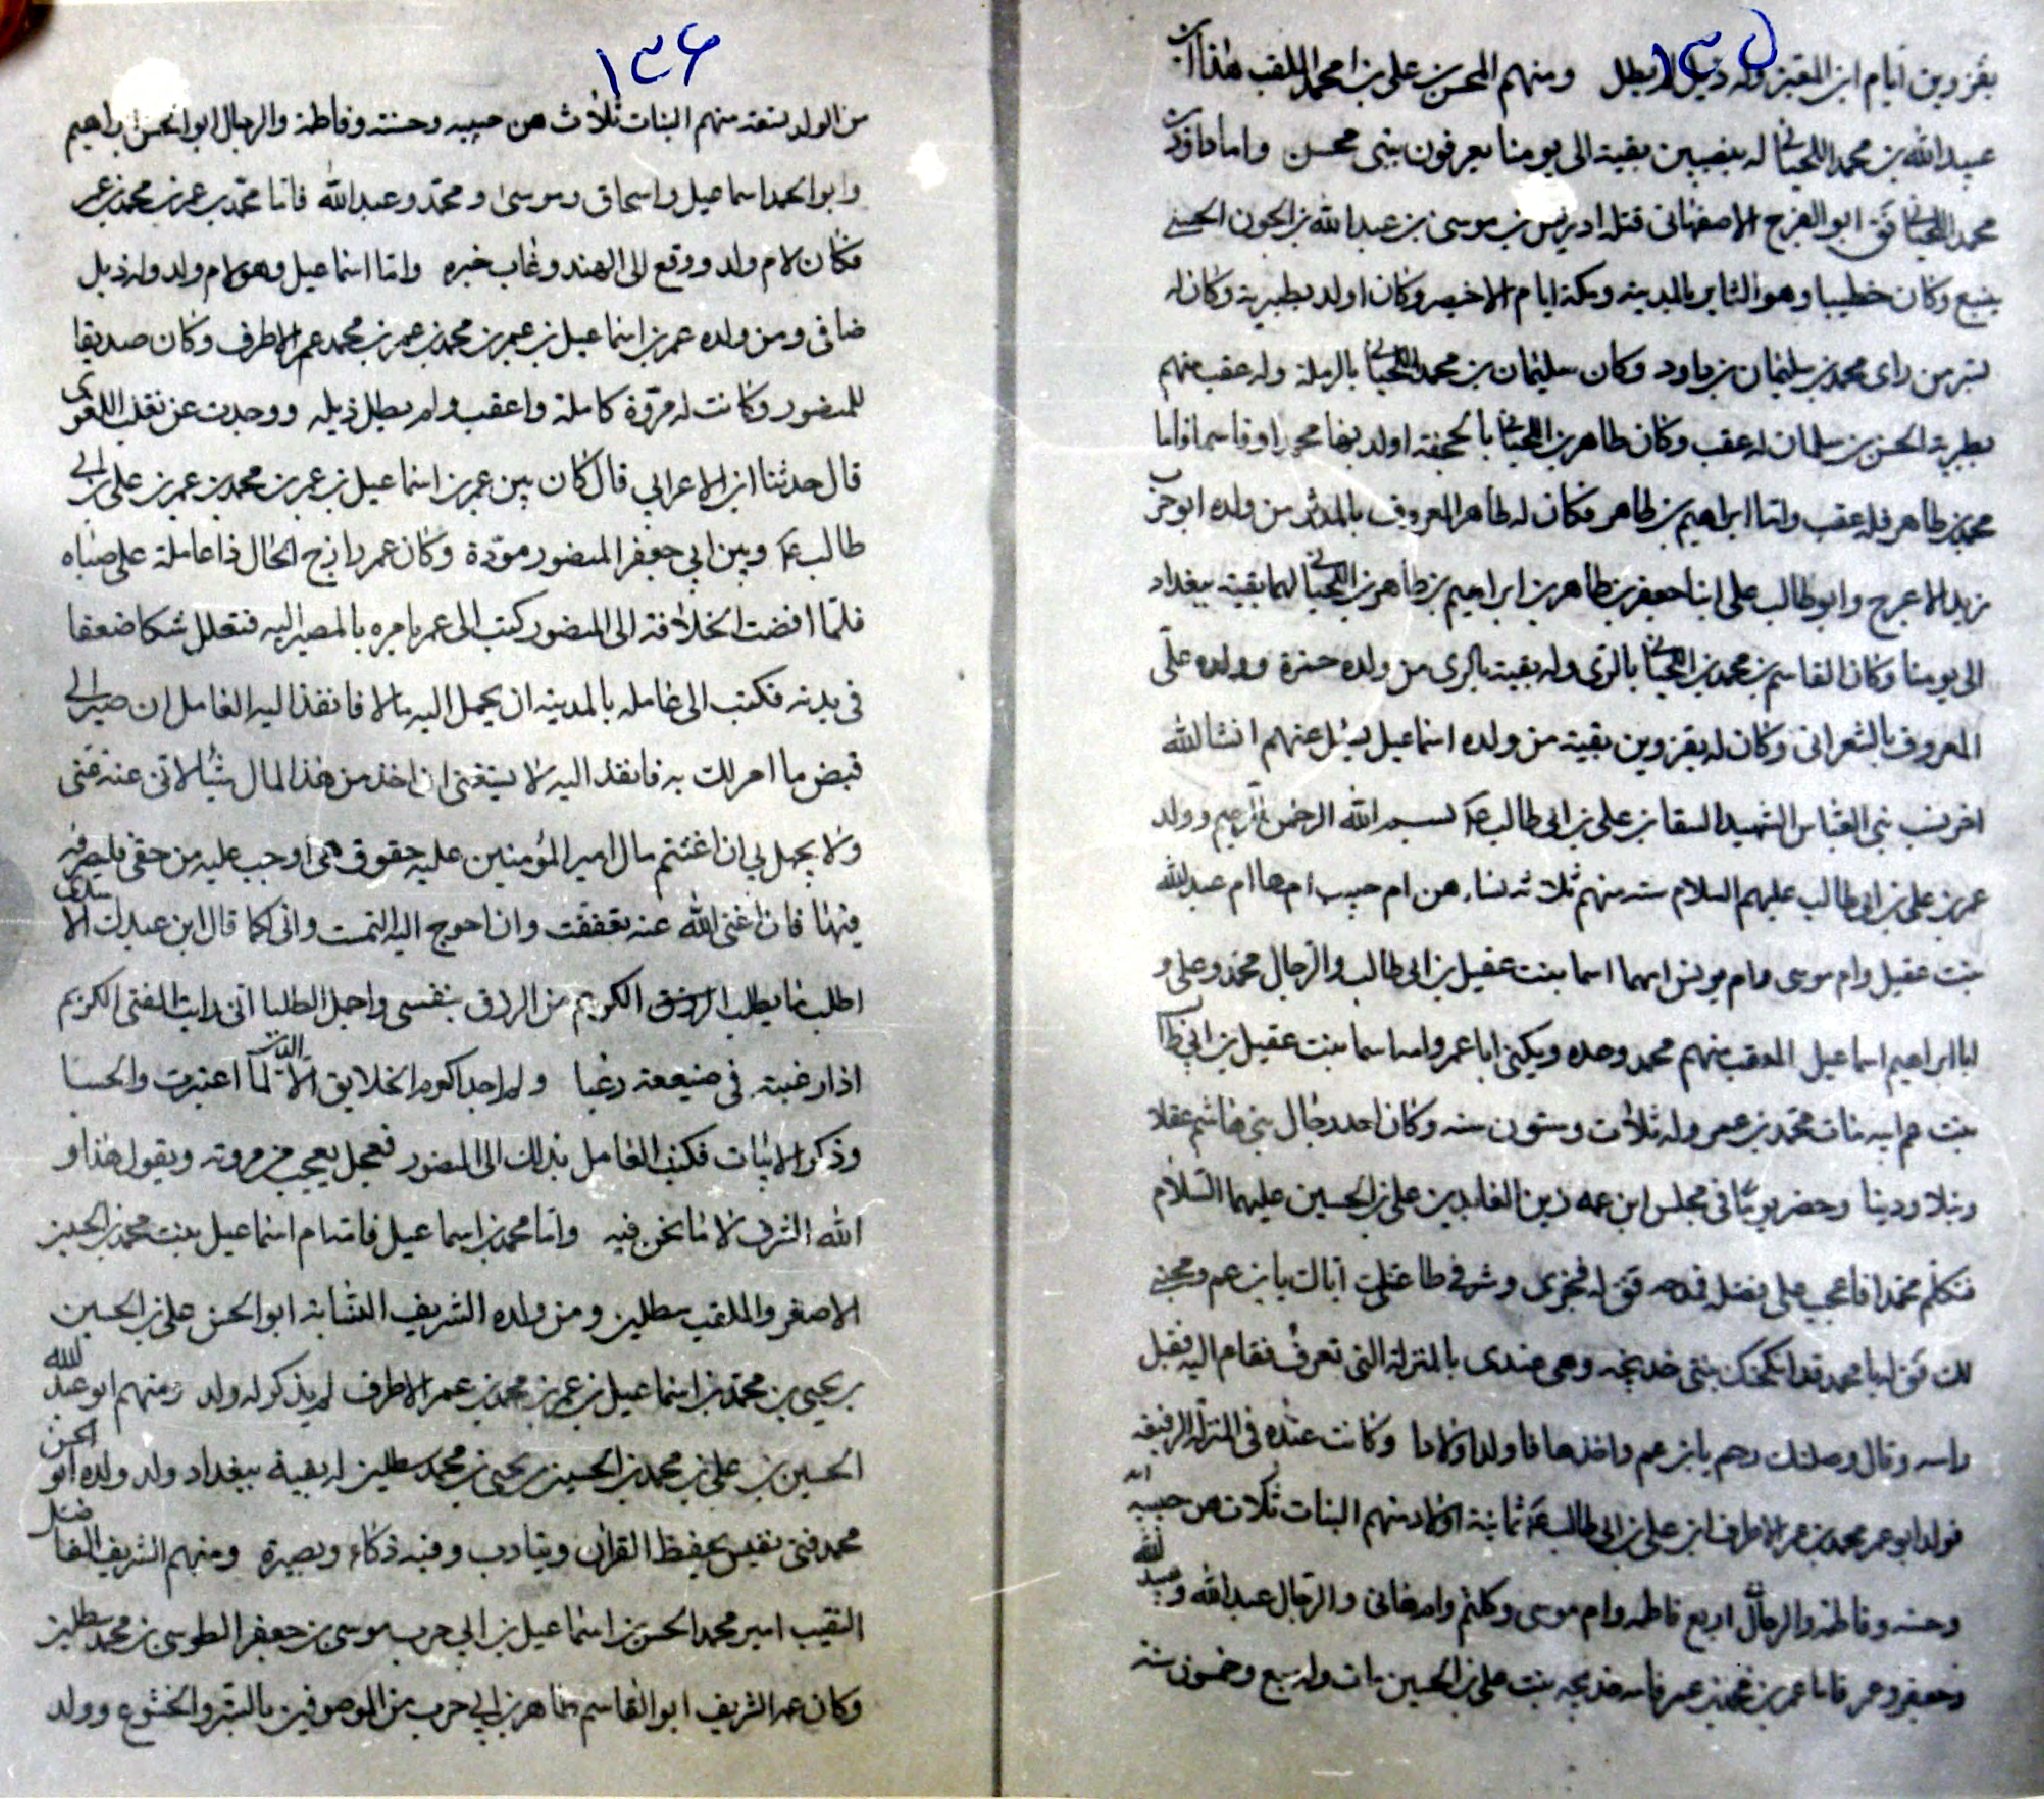 ١٣٥
بقزوين ايام ابن المعتز وله ذيل لم يطل ومنهم المحسن بن علي بن محمد الملقب هذا ابن
عبيد الله بن محمد اللحياني له بنصيبين بقية الى يومنا يعرفون ببني محسن واما داود بن
محمد اللحياني فق ابو الفرج الاصفهاني قتله ادريس بن موسى بن عبد الله بن الجون الحسني
بينبع وكان خطيبا وهو الثاير بالمدينة ومكة ايام الاخيصر وكان اولد بطبرية وكان له
بسر من راى محمد بن سليمان بن داود وكان سليمان بن محمد اللحياني بالرملة وله عقب منهم
بطبرية الحسن بن سلمان له عقب وكان طاهر بن اللحياني بالجحفة اولد بها محمدا وقاسما فاما
محمد بن طاهر فله عقب واما ابراهيم بن طاهر فكان له طاهر المعروف بالمدثر من ولده ابو حرب
زيد الاعرج وابو طالب على ابنا جعفر بن طاهر بن ابراهيم بن طاهر بن اللحياني لهما بقية ببغداد
الى يومنا وكان القاسم بن محمد بن اللحياني بالرى وله بقية بالرى من ولده حمزة وولده علي
المعروف بالشعراني وكان له بقزوين بقية من ولده اسماعيل يسئل عنهم انشا الله
اخر نسب بني العباس الشهيد السقا بن علي بن ابي طالب ع بسم الله الرحمن الرحيم وولد
عمر بن علي بن ابي طالب عليهم السلام ستة منهم ثلاثة نساء هن ام حبيب امها ام عبد الله
بنت عقيل وام موسى وام يونس امهما اسما بنت عقيل بن ابي طالب والرجال محمد وعلي و
ابا ابراهيم اسماعيل المعقب منهم محمد وحده ويكنى ابا عمر وامه اسما بنت عقيل بن ابي طالب
بنت عم ابيه مات محمد بن عمر وله ثلاث وستون سنه وكان احد رجال بني هاشم عقلا
ونبلا ودينا وحضر يوما في مجلس ابن عمه زين العابدين علي بن الحسين عليهما السلام
فتكلم محمد فاعجب علي فقال له
لك فق له يا محمد قد انكحتك بنتي خديجه وهي عندى بالمنزلة التي تعرف فقام اليه فقبل
راسه وقال وصلتك رحم يا بن عم واخذها فاولدها اولادا وكانت عنده في المنزلة الرفيعه
فولد ابو عمر محمد بن عمر الاطرف ابن علي بن ابي طالب ع ثمانية اولاد منهم البنات ثلاث هن حبيبه
وحسنه وفاطمه والرجال اربع فاطمه وام موسى وكلثم وام هاني والرجال عبد الله وعبيد الله
وجعفر وعمر فاما عمر بن محمد بن عمر فامه خديجه بنت علي بن الحسين مات وله سبع وخمسون سنه
١٣٦
من الولد تسعة منهم البنات ثلاث هن حبيبه وحسنه وفاطمة والرجال ابو الحسن ابراهيم
وابو الحمد اسماعيل واسحاق وموسى ومحمد وعبد الله فاما محمد بن عمر بن محمد بن عمر
فكان لام ولد ووقع الى الهند وغاب خبره واما اسماعيل وهو لام ولد وله ذيل
ضافى ومن ولده عمر بن اسماعيل بن عمر بن محمد بن عمر بن محمد عمر الاطرف وكان صديقا
للمنصور وكانت له مروة كاملة واعقب ولم يطل ذيله ووجدت عن ثعلب اللغوى
قال حدثنا ابن الاعرابي قال كان بين عمر بن اسماعيل بن عمر بن محمد بن عمر بن علي بن ابي
طالب ع وبين ابي جعفر المنصور مودة وكان عمر رازح الحال ذا عاملة على صباه
فلما افضت الخلافة الى المنصور كتب الى عمر يامره بالمصير اليه فتعلل شكا ضعفا
في بدنه فكتب الى عامله بالمدينه ان يحمل اليه مالا فانفذ اليه العامل ان صير الي
قبض ما امر لك به فانفذ اليه لا يستغنى ان اخذ من هذا المال شيئا لاني عنه غني
ولا يجمل بي ان اغتنم مال امير المؤمنين عليه حقوق هي اوجب عليه من حقي فليصرفه
فيها فان اغنى الله عنه تعففت وان احوج اليه التمست واني كما قال ابن عبدل الاسدى
اطلب ما يطلب الكريم من الرزق بنفسي واجمل الطلبا اني رايت الفتى الكريم
اذا رغبته في صنيعة رغبا ولم اجد اكوم الخلايق الا الدين لما اعتبرت والحسبا
وذكر الابيات فكتب العامل بذلك الى المنصور فجعل يعجب من مروته ويقول هذا و
الله الشرف لا ما نحن فيه واما محمد بن اسماعيل فامه ام اسماعيل بنت محمد بن الحسين
الاصغر والملقب سطلين ومن ولده الشريف النسابة ابو الحسن علي بن الحسين
بن يحيى بن محمد بن اسماعيل بن عمر بن محمد بن عمر الاطرف لم يذكر له ولد ومنهم ابو عبد الله
الحسين بن علي بن محمد بن الحسين بن يحيى بن محمد سطلين له بقية ببغداد ولد ولده ابو الحسن
محمد فتى نفيس يحفظ القران ويتادب وفيه ذكاء وبصيرة ومنهم الشريف الفاضل
النقيب امير محمد الحسن بن اسماعيل بن ابي حرب موسى بن جعفر الطوسى بن محمد سطلين
وكان عمه الشريف ابو القاسم طاهر بن ابي حرب من الموصوفين بالستر والخشوع وولد